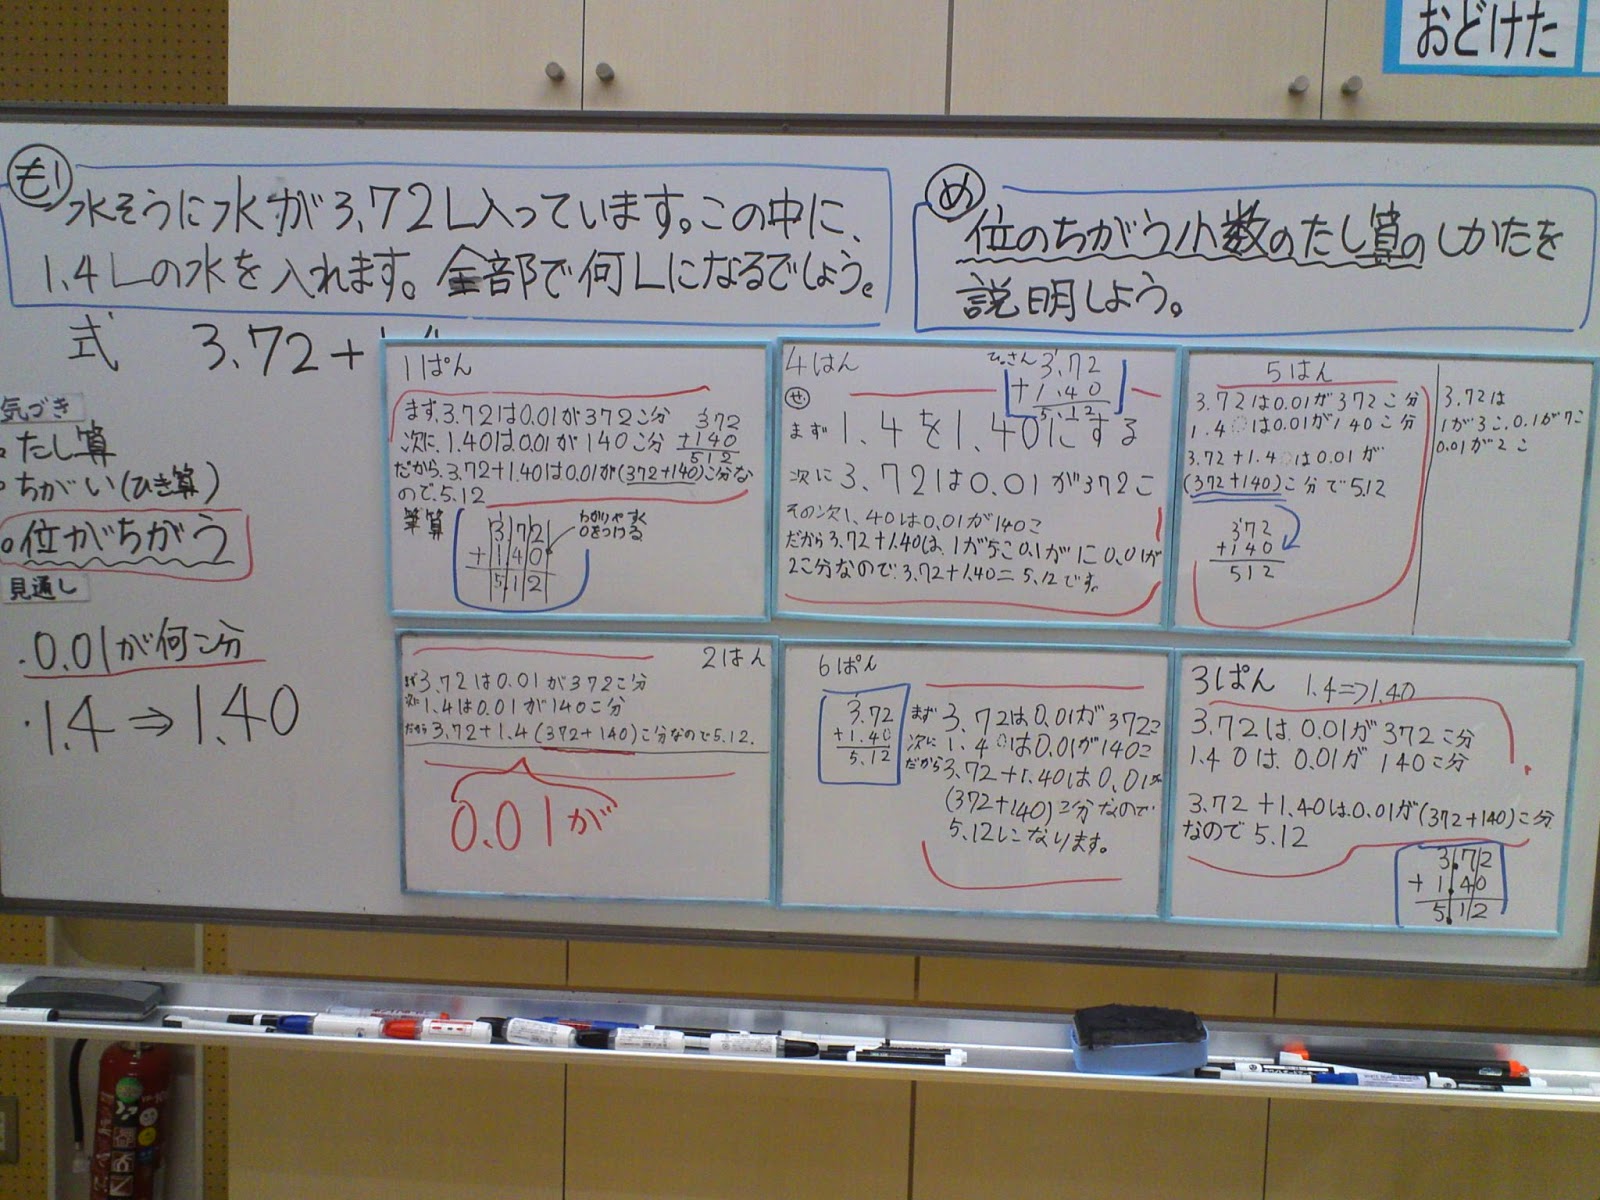 おどけた
も1
水そうに水が3.72L入っています。この中に、
1.4Lの水を入れます。全部で何Lになるでしょう。
め
位のちがう小数のたし算のしかたを
説明しよう。
式 3.72+
気づき
・たし算
・ちがい(ひき算)
・位がちがう
見通し
・0.01が何こ分
・1.4⇒1.40
1ぱん
まず、3.72は0.01が372こ分
次に、1.40は0.01が140こ分
だから、3.72+1.40は0.01が(372+140)こ分な
ので、5.12
372
+140
512
筆算
3 7 2
+ 1 4 0
5 1 2
わかりやすく
0をつける
4はん
ひっさん
3.72
+1.40
5.12
せ
まず 1.4を1.40にする
次に 3.72は0.01が372こ
その次1.40は0.01が140こ
だから3.72+1.40は、1が5こ0.1が1こ0.01が
2こ分なので、3.72+1.40=5.12です。
5はん
3.72は0.01が372こ分
1.40は0.01が140こ分
3.72+1.40は0.01が
(372+140)こ分で5.12
372
+140
512
3.72は
1が3こ、0.1が7こ
0.01が2こ
2はん
まず3.72は0.01が372こ分
次に1.4は0.01が140こ分
だから3.72+1.4(372+140)こ分なので5.12.
0.01が
6ぱん
3.72
+1.40
5.12
まず 3.72は0.01が372こ
次に 1.40は0.01が140こ
だから3.72+1.40は0.01が
(372+140)こ分なので
5.12になります。
3ぱん 1.4⇒1.40
3.72は、0.01が372こ分
1.40は、0.01が140こ分
3.72+1.40は、0.01が(372+140)こ分
なので5.12
3.72
+ 1.40
5.12